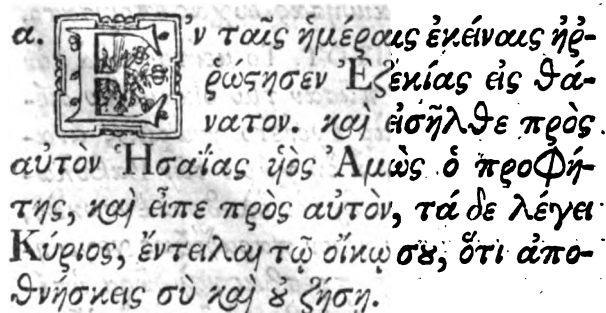 α. Ἐν ταῖς ἡμέραις ἐκείναις ἠῤ-
ῥώςησεν Ἐζεκίας εἰς θά-
νατον. καὶ εἰσῆλθε πρὸς
αὐτὸν Ἡσαΐας ὑὸς Ἀμὼς ὁ προφή-
της, καὶ εἶπε πρὸς αὐτὸν, τάδε λέγει
Κύριος, ἔντειλαι τῷ οἴκῳ σου, ὅτι ἀπο-
θνήσκεις σὺ καὶ οὐ ζήσῃ.